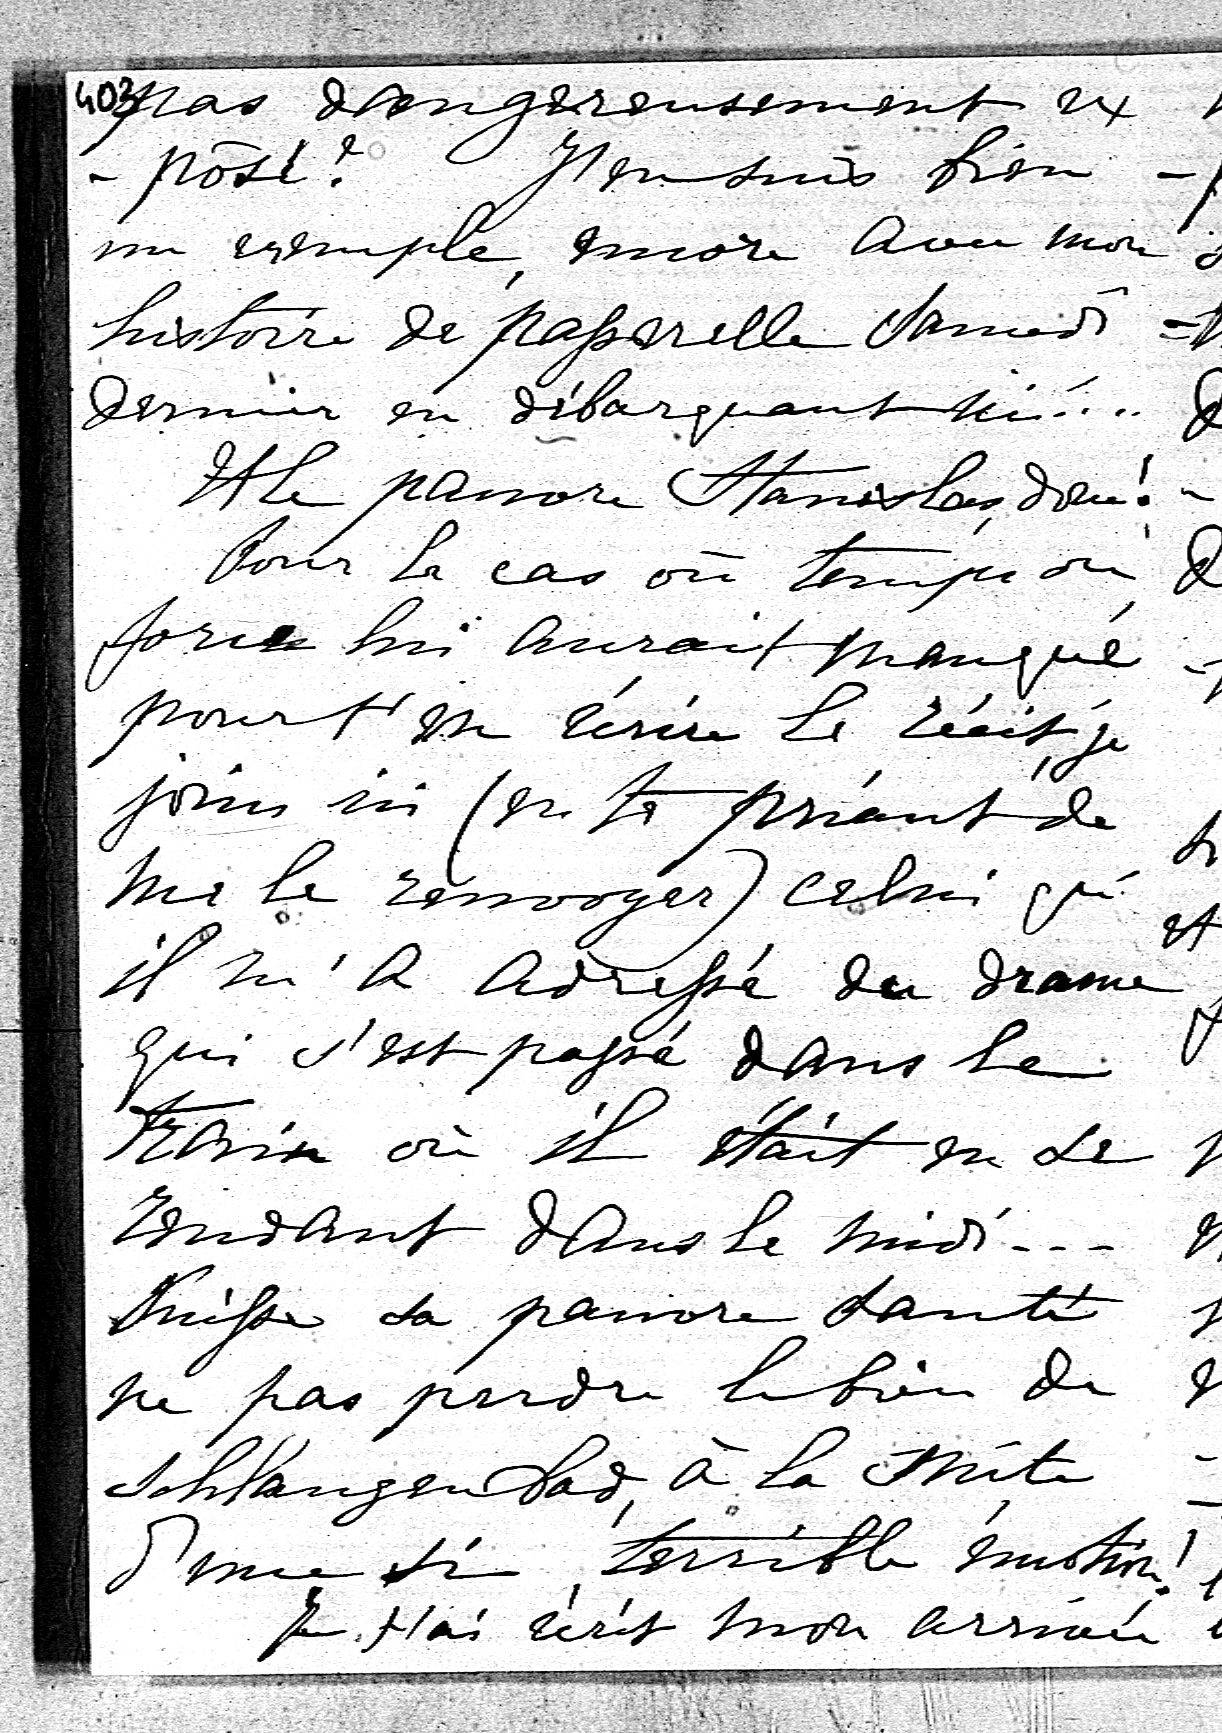 403
pas dangereusement ex
- posé? J'en suis bien
un exemple, encore avec mon
histoire de passerelle Samedi
dernier en débarquant ici....
Et le pauvre Stanislas, donc!
Pour le cas où temps ou
forces lui aurait manqué
pour t'en écrire le récit, je
joins ici (en te priant de
me le renvoyer) celui qu'
il m'a adressé du drame
qui s'est passé dans le
train où il était en se
rendant dans le midi - - -
Puisse sa pauvre santé
ne pas perdre le bien de
Schlangenbad, à la suite
d'une si terrible émotion!
Je t'ai écrit mon arrivée